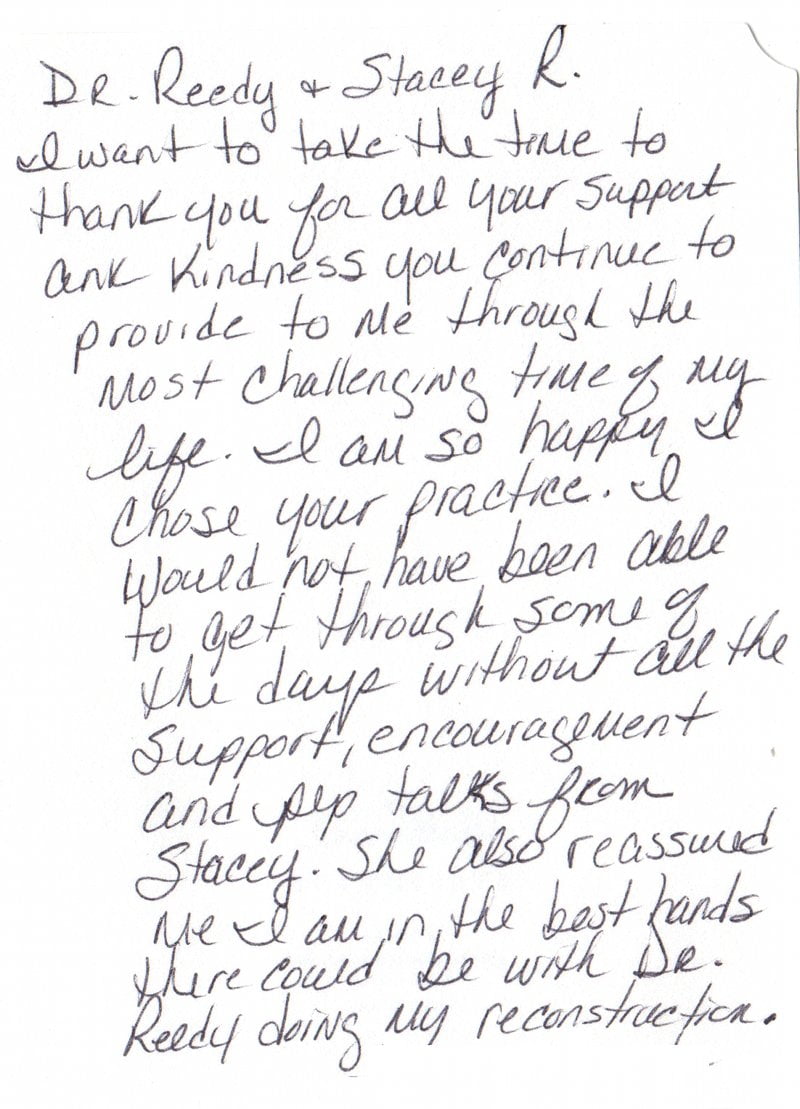 DR. Reedy & Stacey R.
I want to take the time to
thank you for all your support
ank kindness you continue to
provide to me through the
most challenging time of my
life. I am so happy I
chose your practice. I
would not have been able
to get through some of
the days without all the
support, encouragement
and pep talks from
Stacey. She also reassured
me I am in the best hands
there could be with DR.
Reedy doing my reconstruction.